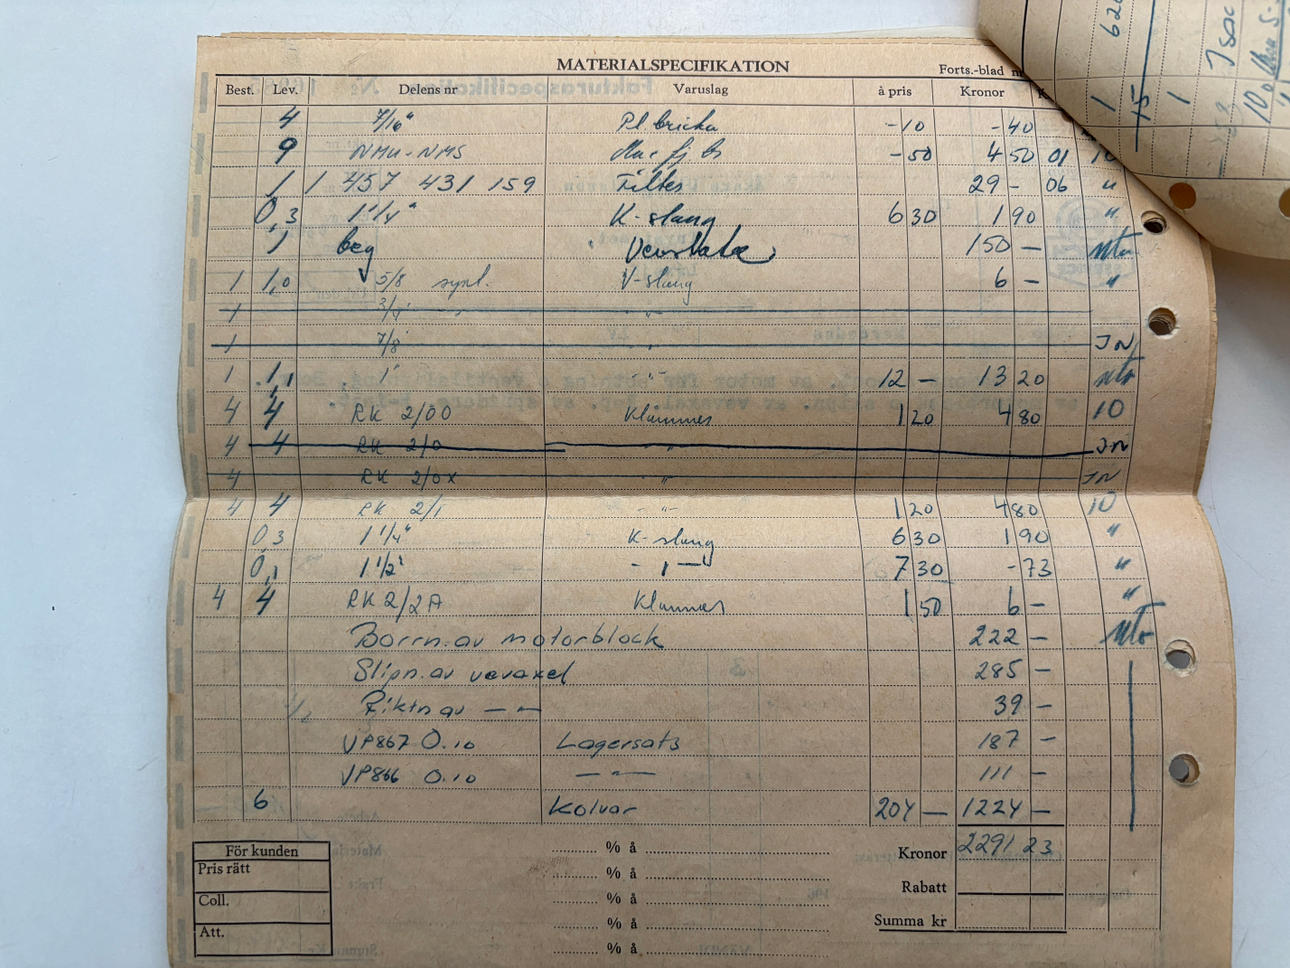 MATERIALSPECIFIKATION
Forts.-blad nr
Best. Lev. Delens nr Varuslag à pris Kronor
4 7/16" Pl bricka -10 -40
9 NMU-NMS -50 4 50 01 10
1 1 457 431 159 Filter 29 - 06 "
0,3 1 1/4" K-slang 6 30 1 90 "
1 beg 150 - nto
1 1,0 5/8 synl. V-slang 6 - "
1 3/4 " - " -
1 7/8 - " - JN
1 1,1 1" - " - 12 - 13 20 nto
4 4 RK 2/00 Klammer 1 20 4 80 10
4 4 RK 2/0 - " - JN
4 RK 2/0x - " - JN
4 4 RK 2/1 - " - 1 20 4 80 10
0,3 1 1/4" K-slang 6 30 1 90 "
0,1 1 1/2" - " - 7 30 - 73 "
4 4 RK 2/2A Klammer 1 50 6 - "
Borrn. av motorblock 222 - nto
Slipn. av vevaxel 285 -
Riktn av - " - 39 -
VP867 0.10 Lagersats 187 -
VP866 0.10 - " - 111 -
6 Kolvar 204 - 1224 -
Kronor 2291 23
Rabatt
Summa kr
För kunden
Pris rätt
Coll.
Att.
% à
% à
% à
% à
% à